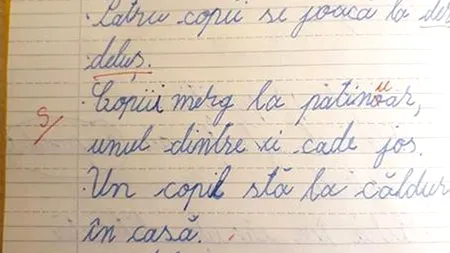 ·Patru copii se joacă la der
deluș.
·Copiii merg la patinoar,
unul dintre ei cade jos.
·Un copil stă la căldur
în casă.